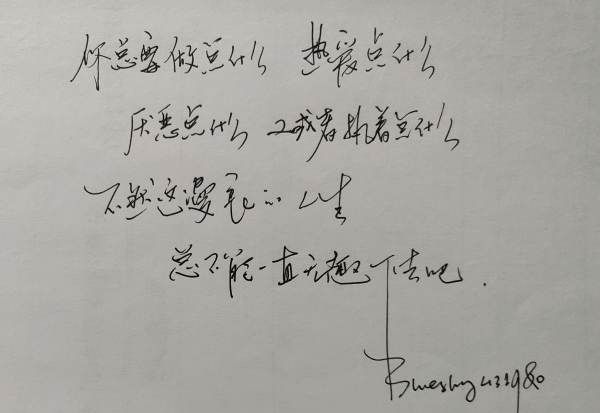 你总要做点什么 热爱点什么
厌恶点什么 或者执着点什么
不然这漫长的人生
总不能一直无趣下去吧.